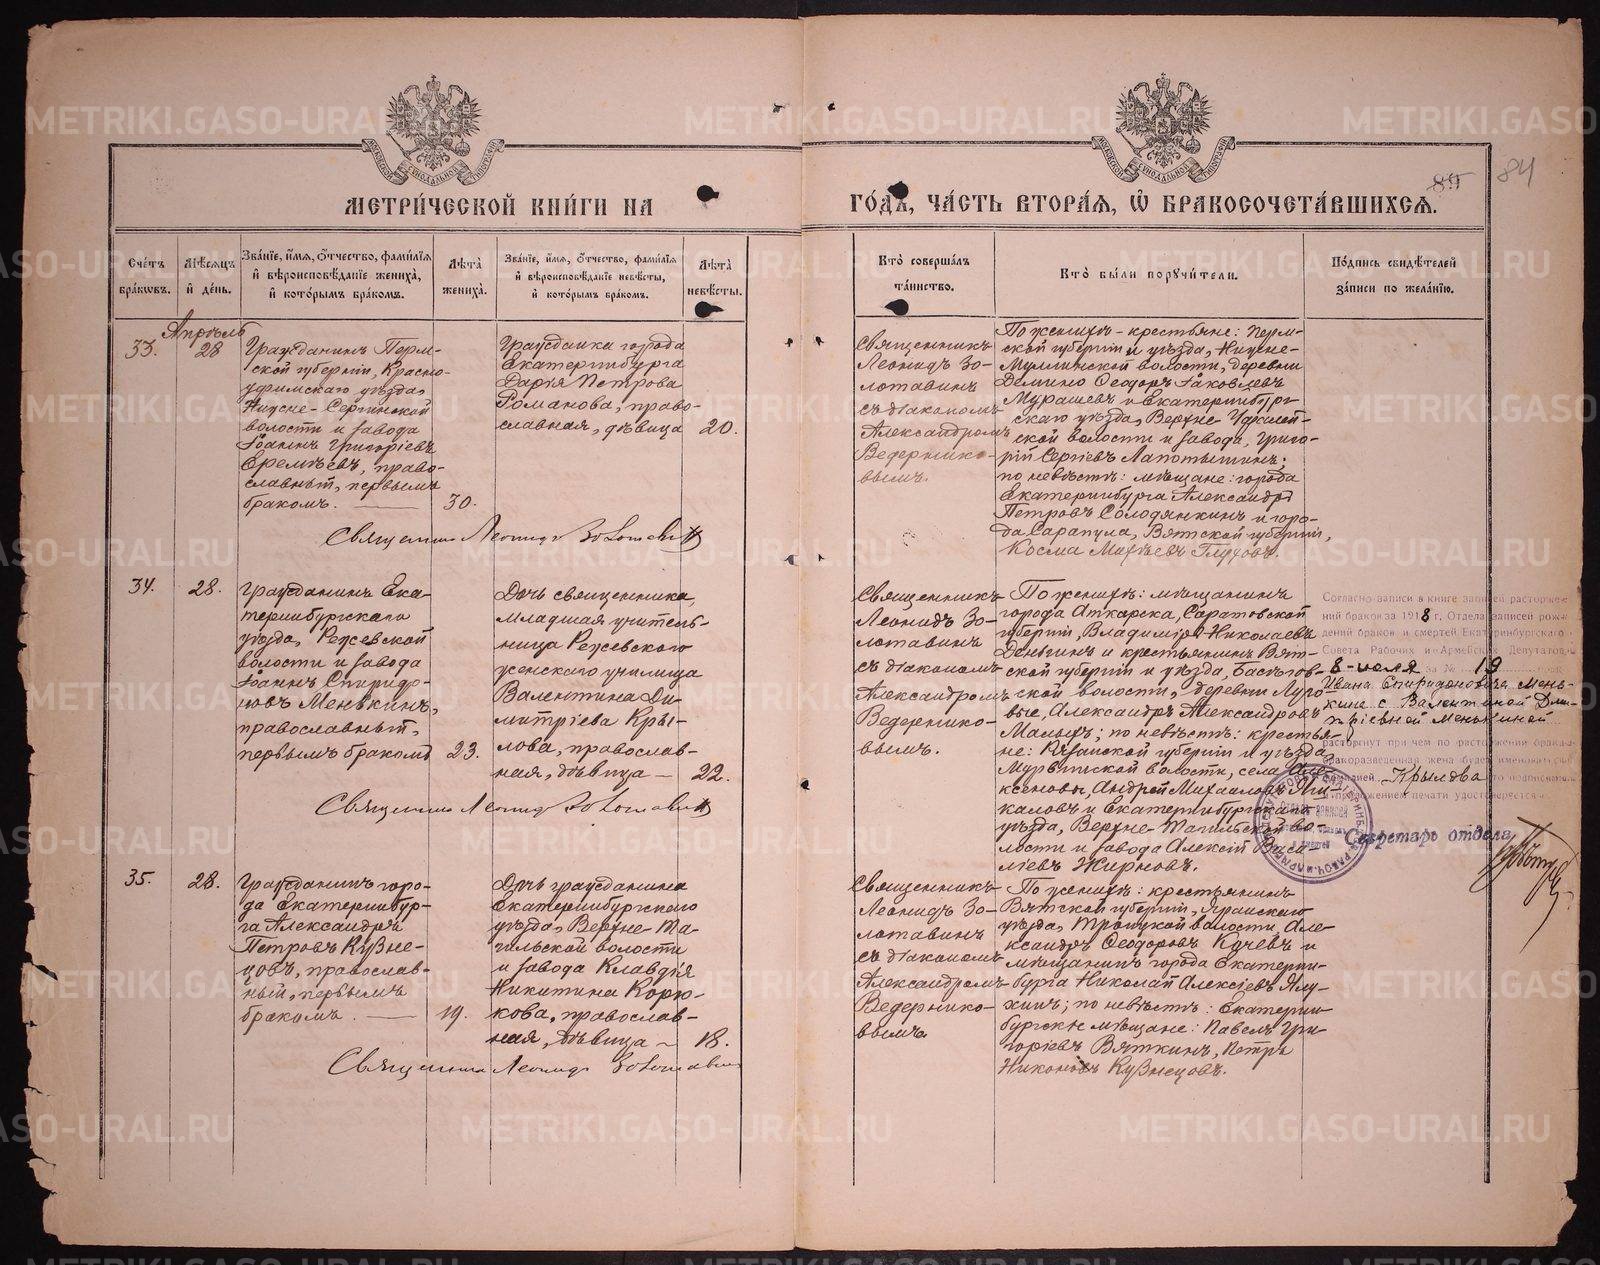 МЕТРИ́ЧЕСКОЙ КНИ́ГИ НА
ГО́ДЪ, ЧА́СТЬ ВТОРА́Я, Ѡ҆ БРАКОСОЧЕТА́ВШИХСЯ.
84
Сче́тъ бра́кѡвъ.
Мѣ́сяцъ и҆ де́нь.
Зва́нїе, и҆́мя, ѻ҆́тчество, фами́лїя
и҆ вѣроисповѣ́данїе жениха̀,
и҆ кото́рымъ бра́комъ.
Лѣ́та жениха̀.
Зва́нїе, и҆́мя, ѻ҆́тчество, фами́лїя
и҆ вѣроисповѣ́данїе невѣ́сты,
и҆ кото́рымъ бра́комъ.
Лѣ́та невѣ́сты.
Кто̀ соверша́лъ
та́инство.
Кто̀ бы́ли порꙋчи́тели.
По́дпись свидѣ́телей
за́писи по жела́нїю.
33.
Апрѣль
28
Гражданинъ Перм-
ской губернiи, Красно-
уфимскаго уѣзда,
Нижне-Сергинской
волости и завода
Iоаннъ Григорiевъ
Еремѣевъ, право-
славный, первымъ
бракомъ.
30.
Гражданка города
Екатеринбурга
Дарiя Петрова
Романова, право-
славная, дѣвица
20.
Священникъ
Леонидъ Зо-
лотавинъ
съ дiакономъ
Александромъ
Ведернико-
вымъ.
По женихѣ - крестьяне: Перм-
ской губернiи и уѣзда, Нижне-
Муллинской волости, деревни
Демино Ѳеодоръ Iаковлевъ
Мурашевъ и Екатеринбург-
скаго уѣзда, Верхне-Уфалей-
ской волости и завода, Григо-
рiй Сергiевъ Лапотышкинъ;
по невѣстѣ: мѣщане: города
Екатеринбурга Александръ
Петровъ Солодянкинъ и горо-
да Сарапула, Вятской губернiи,
Косма Матѳеевъ Глуховъ.
Священникъ Леонидъ Золотавинъ
34.
28.
Гражданинъ Ека-
теринбургскаго
уѣзда, Режевской
волости и завода
Iоаннъ Спиридо-
новъ Менькинъ,
православный,
первымъ бракомъ
23.
Дочь священника,
младшая учитель-
ница Режевскаго
женскаго училища
Валентина Ди-
митрiева Кры-
лова, православ-
ная, дѣвица —
22.
Священникъ
Леонидъ Зо-
лотавинъ
съ дiакономъ
Александромъ
Ведернико-
вымъ.
По женихѣ: мѣщанинъ
города Аткарска, Саратовской
губернiи, Владимiръ Николаевъ
Деньгинъ и крестьянинъ Вят-
ской губернiи и уѣзда,
ской волости, деревни Луго-
вые, Александръ Александровъ
Малыхъ; по невѣстѣ: крестья-
не: Казанской губернiи и уѣзда,
волости, села Але-
ксеновы, Андрей Михаиловъ
каловъ и Екатеринбургскаго
уѣзда, Верхне-Тагильской во-
лости и завода Алексiй Васи-
лiевъ Жирновъ.
Согласно записи в книге записей расторже-
ний браков за 1918 г. Отдела записей рож-
дений браков и смертей Екатеринбургского
Совета Рабочих и Армейских Депутатов,
8-июля за № 19 брак
Ивана Спиридоновича Мень-
кина с Валентиной Дми-
трiевной Менькиной
расторгнут при чем по расторжении брака
бракоразведенная жена будет именоваться
фамилией Крылова что подписью
и приложением печати удостоверяется
Секретарь отдела
Священникъ Леонидъ Золотавинъ
35.
28.
Гражданинъ горо-
да Екатеринбур-
га Александръ
Петровъ Кузне-
цовъ, православ-
ный, первымъ
бракомъ.
19.
Дочь гражданина
Екатеринбургскаго
уѣзда, Верхне-Та-
гильской волости
и завода Клавдiя
Никитина Корю-
кова, православ-
ная, дѣвица —
18.
Священникъ
Леонидъ Зо-
лотавинъ
съ дiакономъ
Александромъ
Ведернико-
вымъ.
По женихѣ: крестьянинъ
Вятской губернiи, Яранскаго
уѣзда, Троицкой волости, Але-
ксандръ Ѳеодоровъ Качевъ и
мѣщанинъ города Екатерин-
бурга Николай Алексiевъ Ялу-
хинъ; по невѣстѣ: Екатерин-
бургскiе мѣщане: Павелъ Гри-
горiевъ Вяткинъ, Петръ
Никоновъ Кузнецовъ.
Священникъ Леонидъ Золотавинъ
METRIKI.GASO-URAL.RU